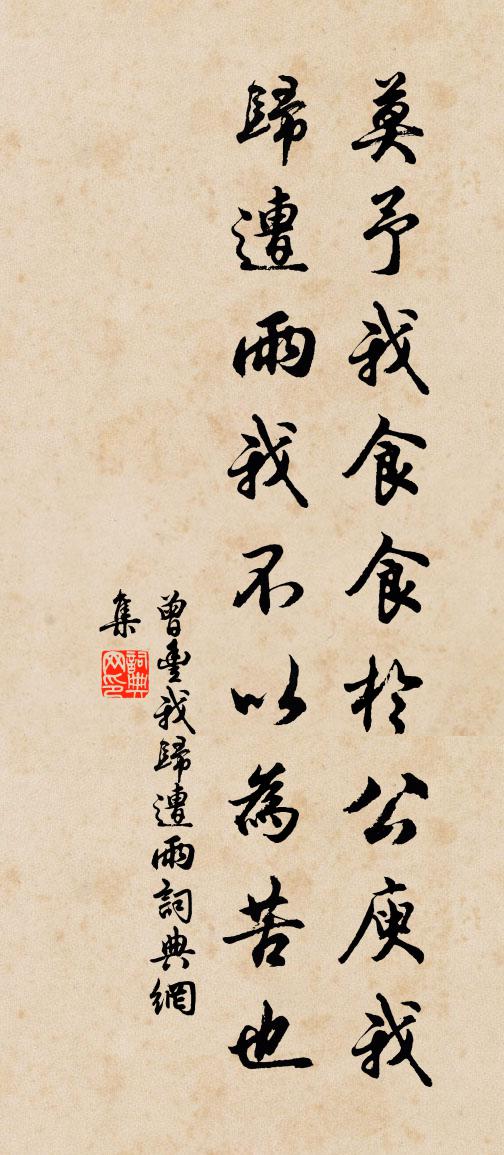 莫予我食食於公庾我
歸遭雨我不以為苦也
曾豐我歸遭雨詞典網
集
詞典網印